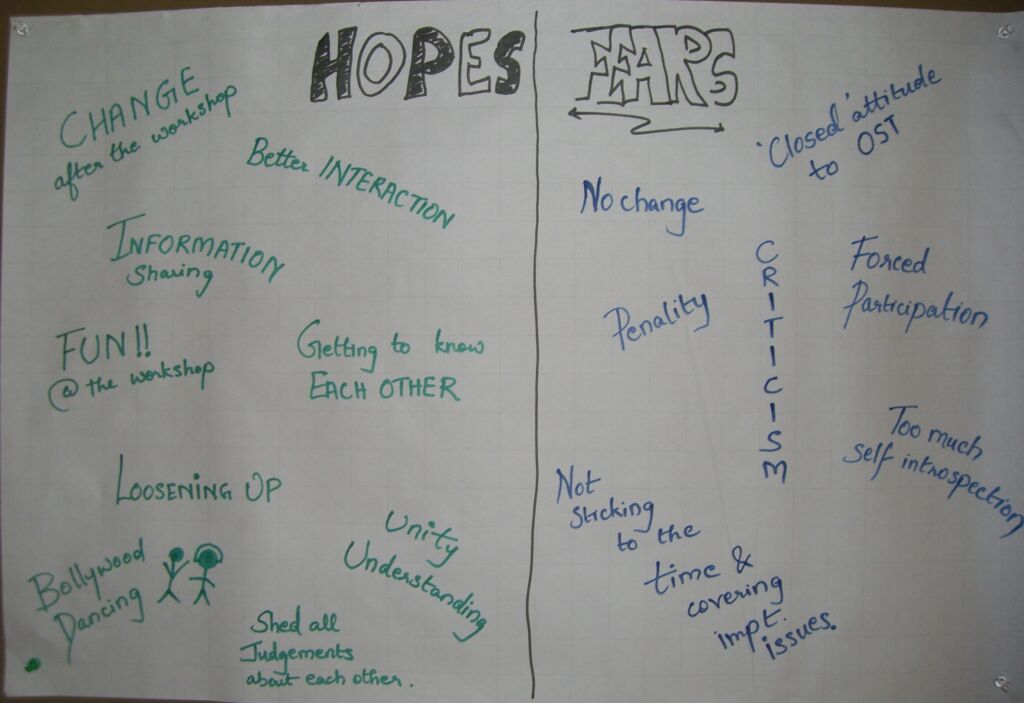 HOPES
CHANGE
after the workshop
Better INTERACTION
INFORMATION
Sharing
FUN!!
@ the workshop
Getting to know
EACH OTHER
LOOSENING UP
Bollywood
Dancing
Unity
Understanding
Shed all
Judgements
about each other.
FEARS
'Closed' attitude
to OST
No change
CRITICISM
Forced
Participation
Penality
Too much
self introspection
Not
sticking
to the
time &
covering
impt.
issues.